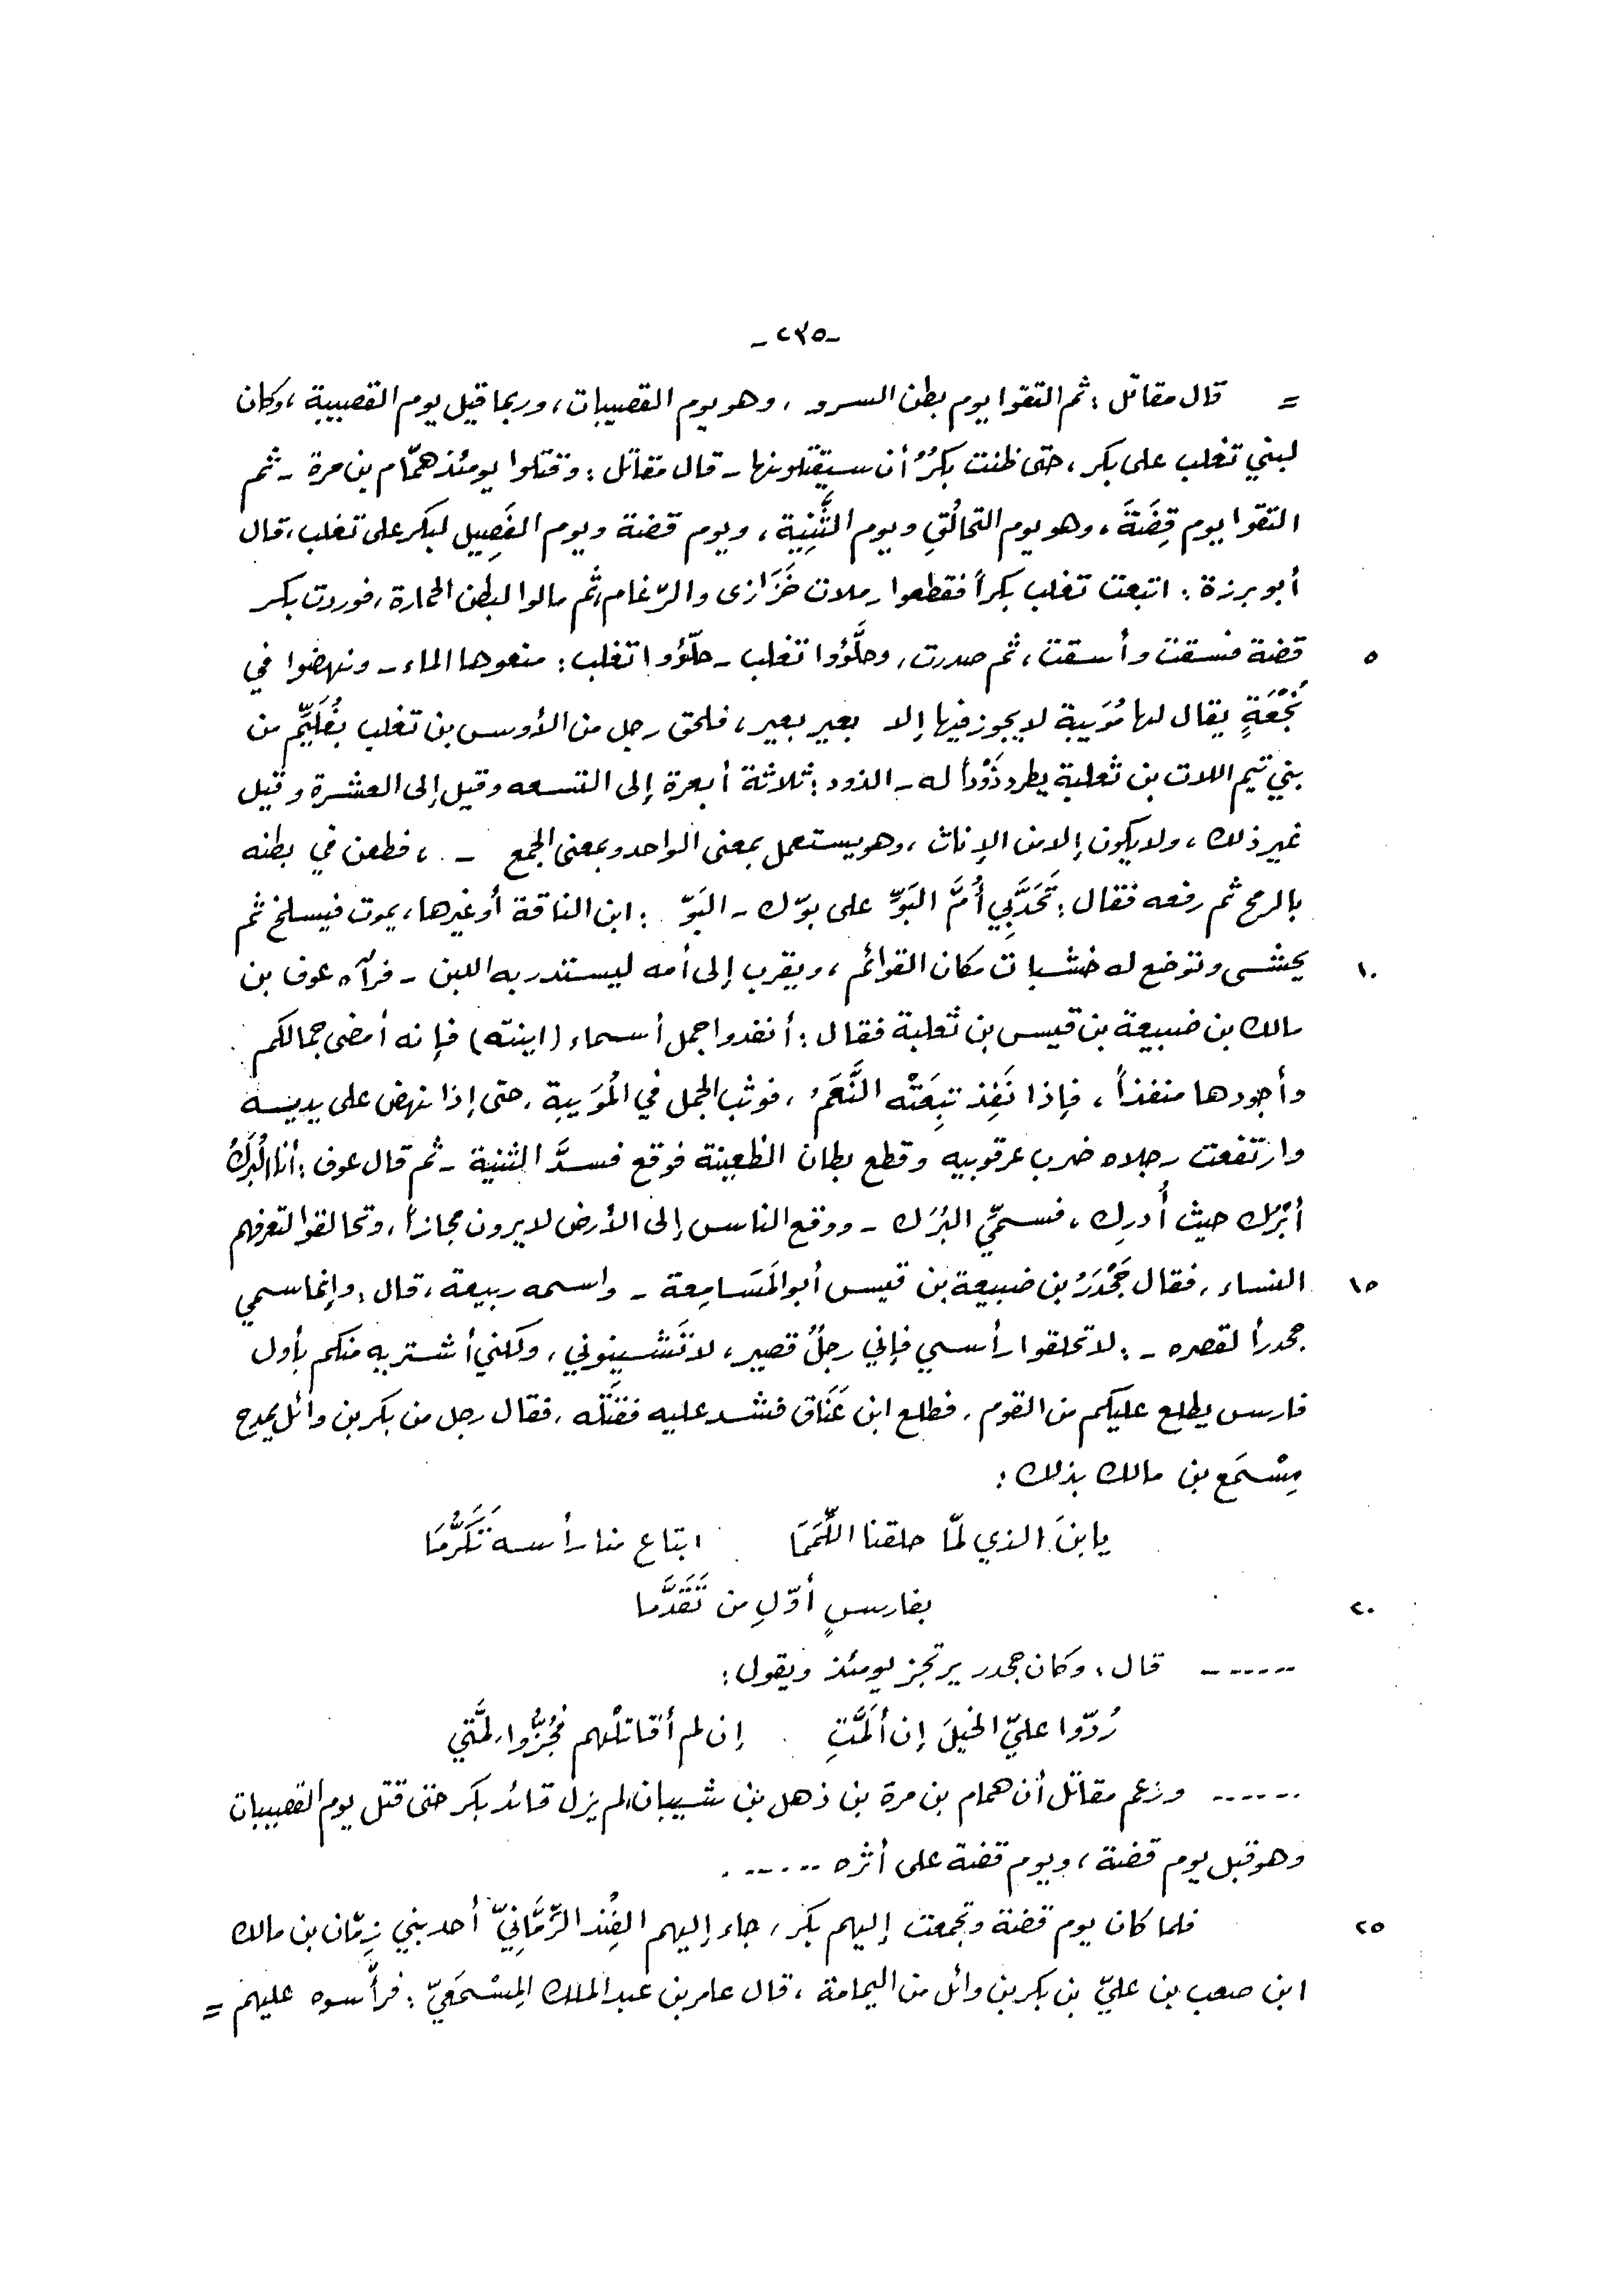 -٢٣٥-
= قال مقاتل : ثم التقوا يوم بطن السرو ، وهو يوم القصيبات ، وربما قيل يوم القصيبة ، وكان
لبني تغلب على بكر ، حتى ظنت بكرٌ أن سيقتلونها - قال مقاتل : وقتلوا يومئذ همّام بن مرة - ثم
التقوا يوم قِضَةَ ، وهو يوم التحالُقِ ويوم الثَّنِيَّة ، ويوم قضة ويوم الفَصِيل لبكر على تغلب ، قال
أبو برزة : اتبعت تغلب بكراً فقطعوا رملات خَزَازى والرّغام ، ثم مالوا لبطن الحمارة ، فوردت بكر
٥ قضة فسقت وأسقت ، ثم صدرت ، وحلَّؤوا تغلب - حلّؤوا تغلب : منعوها الماء - ونهضوا في
نُجْعَةٍ يقال لها مُوَيبة لا يجوز فيها إلا بعير بعير ، فلحق رجل من الأوس بن تغلب بغُلَيِّم من
بني تيم اللات بن ثعلبة يطرد ذَوْداً له - الذود : ثلاثة أبعرة إلى التسعه وقيل إلى العشرة وقيل
غير ذلك ، ولا يكون إلا من الإناث ، وهو يستعمل بمعنى الواحد وبمعنى الجمع - ، فطعن في بطنه
بالرمح ثم رفعه فقال : تَحَدَّبِي أُمَّ البَوِّ على بوّك - البَوّ : ابن الناقة أو غيرها ، يموت فيسلخ ثم
١٠ يحشى وتوضع له خشبات مكان القوائم ، ويقرب إلى أمه ليستدر به اللبن - فرآه عوف بن
مالك بن ضبيعة بن قيس بن ثعلبة فقال : أنفدوا جمل أسماء (ابنته) فإنه أمضى جمالكم
وأجودها منفذاً ، فإذا نَفِذ تبِعَتْه النَّعَمُ ، فوثب الجمل في المُوَيبة ، حتى إذا نهض على يديه
وارتفعت رجلاه ضرب عرقوبيه وقطع بطان الظعينة فوقع فسدَّ الثنية - ثم قال عوف : أنا البُرَكُ
أبْرُك حيث أُدرِك ، فسمّي البُرَك - ووقع الناس إلى الأرض لا يرون مجازاً ، وتحالقوا لتعرفهم
١٥ النساء ، فقال جَحْدَرُ بن ضبيعة بن قيس أبو المَسَامِعة - واسمه ربيعة ، قال : وإنما سمي
جحدراً لقصره - : لا تحلقوا رأسي فإني رجلٌ قصير ، لا تَشينوني ، ولكني أشتريه منكم بأول
فارس يطلع عليكم من القوم ، فطلع ابن عَنَاق فشد عليه فقتَله ، فقال رجل من بكر بن وائل يمدح
مِسْمَع بن مالك بذلك :
يا ابنَ الذي لمّا حلقنا اللِّمَمَا ابتاع منا رأسه تَكَرُّمَا
٢٠ بفارسٍ أوّلِ من تَقَدَّما
------ قال : وكان جحدر يرتجز يومئذ ويقول :
رُدّوا عليّ الخيلَ إن أَلَمَّتِ إن لم أقاتلْهم فجُزُّوا لمَّتي
------ وزعم مقاتل أن همام بن مرة بن ذهل بن شيبان لم يزل قائد بكر حتى قتل يوم القصيبات
وهو قبل يوم قضة ، ويوم قضة على أثره ------ .
٢٥ فلما كان يوم قضة وتجمعت إليهم بكر ، جاء إليهم الفِنْد الزِّمَّانِيّ أحد بني زِمّان بن مالك
ابن صعب بن عليّ بن بكر بن وائل من اليمامة ، قال عامر بن عبد الملك المِسْمَعيّ : فرأَّسوه عليهم =